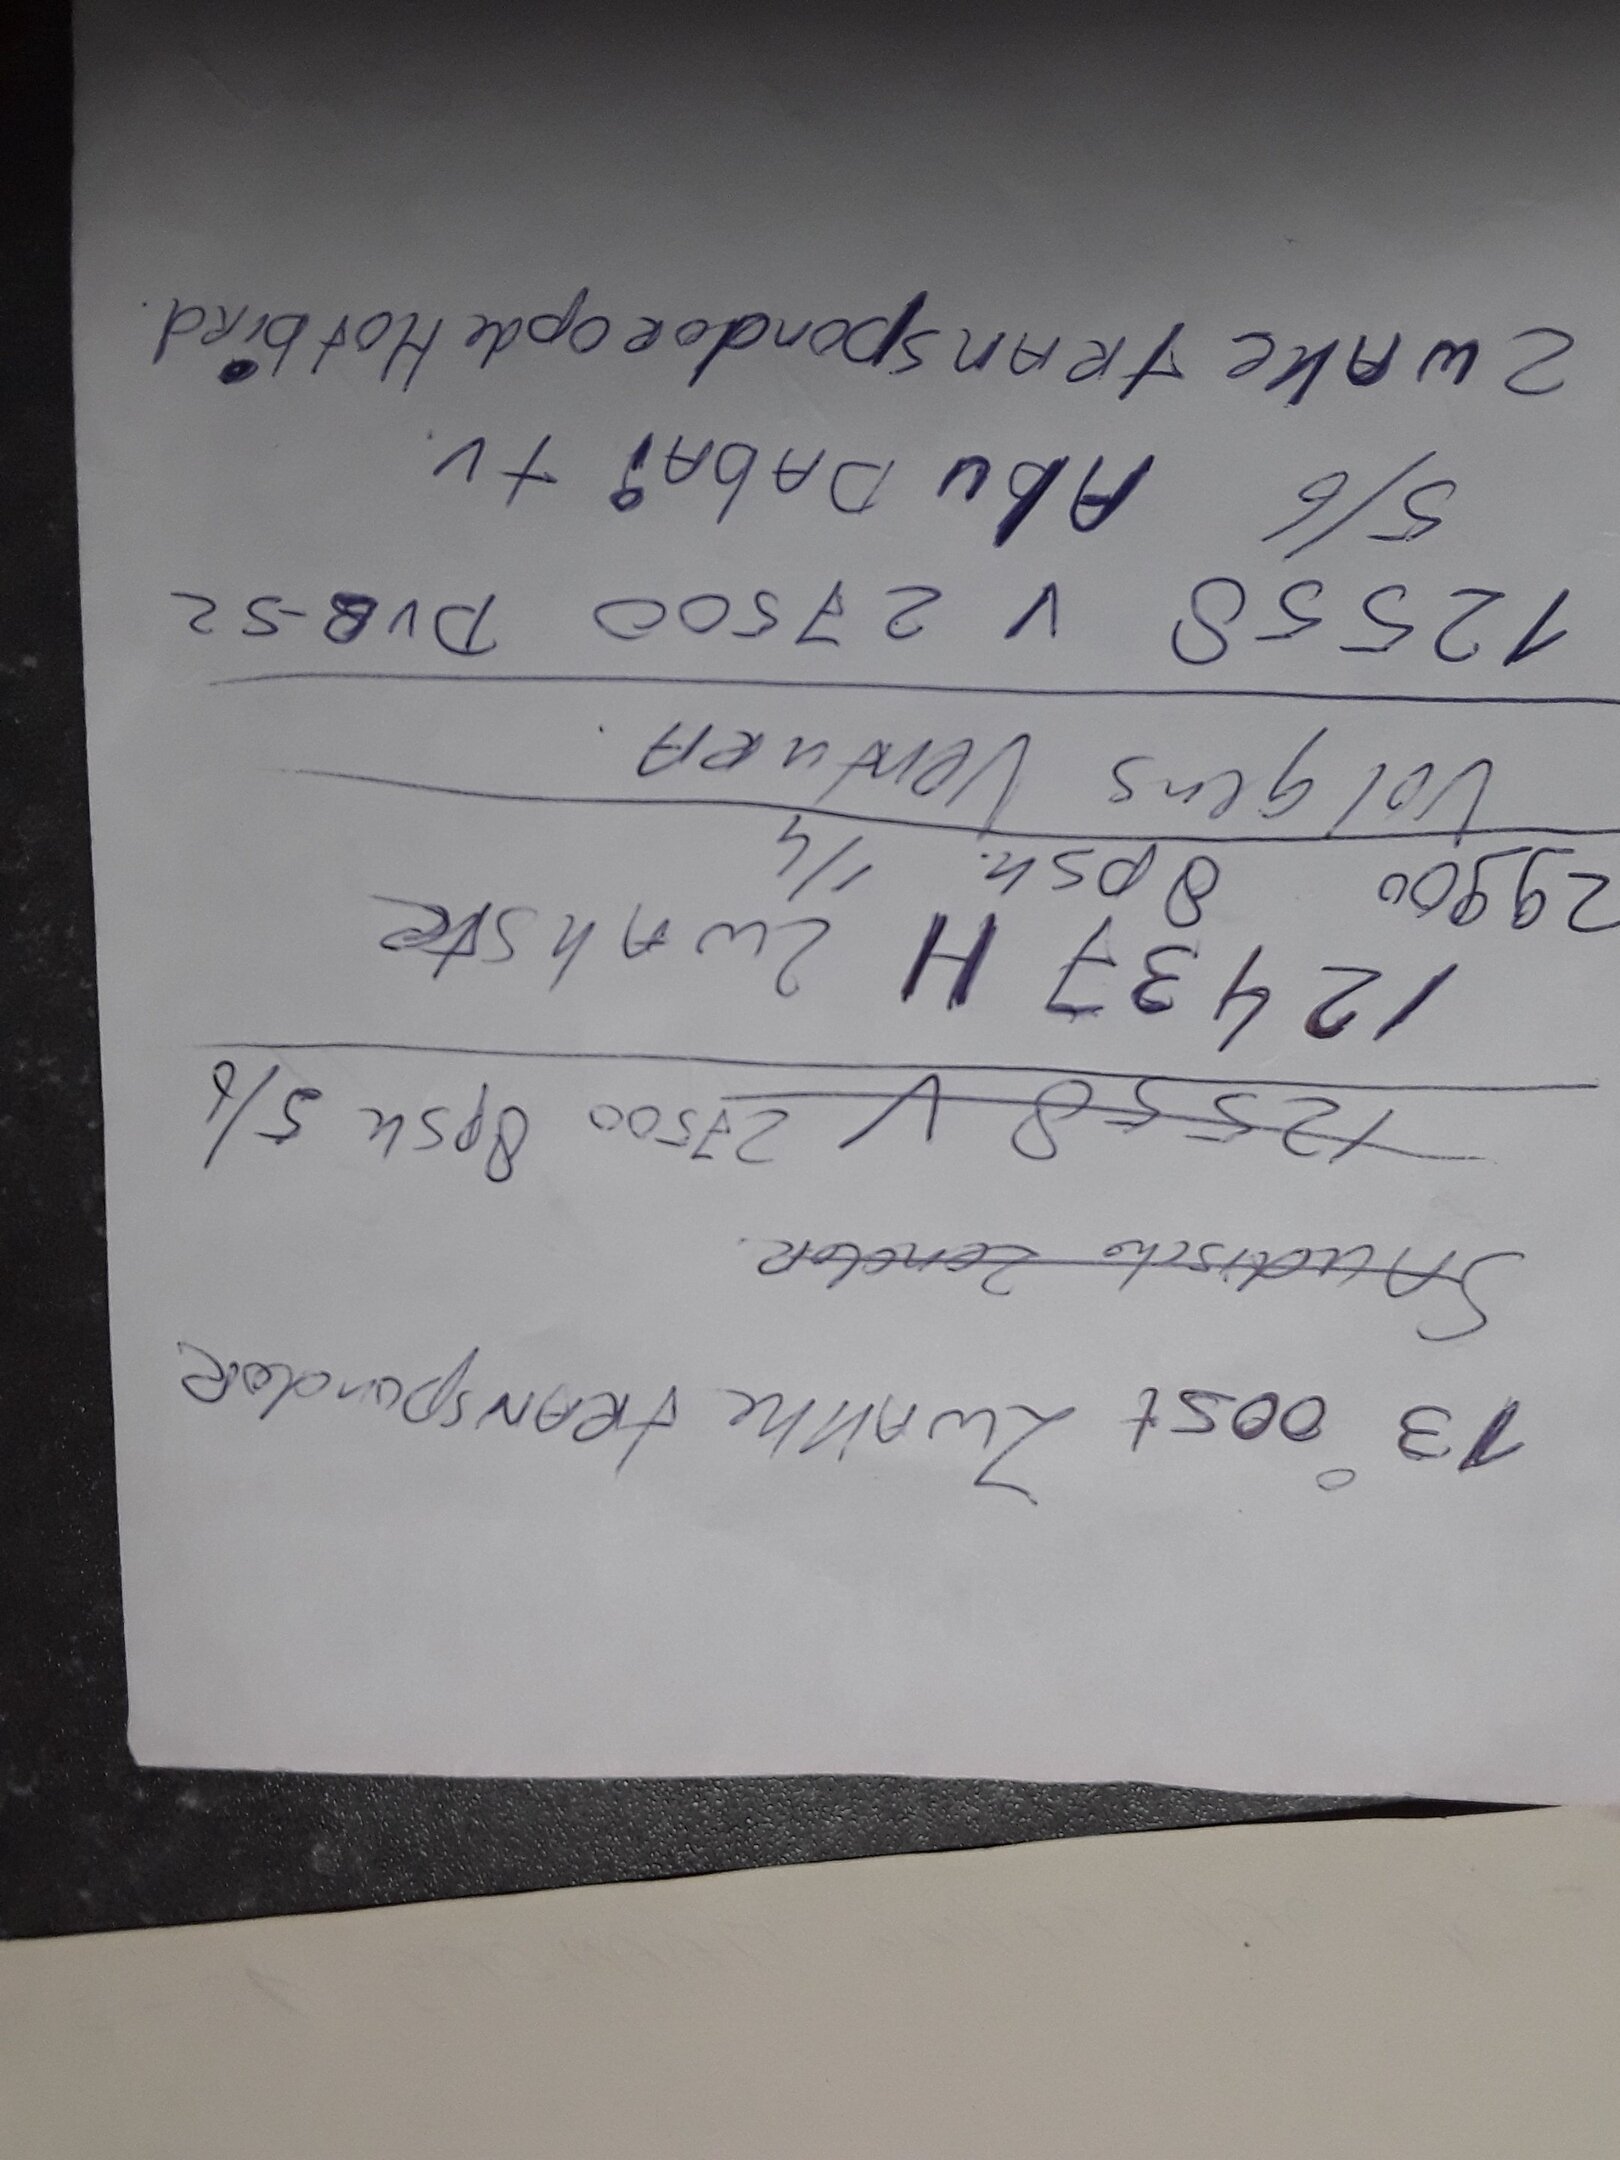 13° oost Zwakke transponder
Saudische zender.
12558 V 27500 8psk 5/6
12437 H Zwakste
29900 8psk. 1/4
Volgens Ventura.
12558 V 27500 DVB-S2
5/6 Abu Dabai tv.
Zwake transponder op de Hotbird.